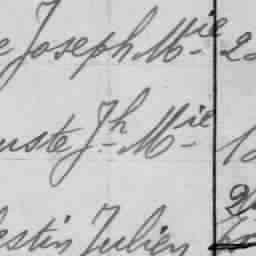 e Joseph Mie 2
uste Jh Mie 1
estin Julien